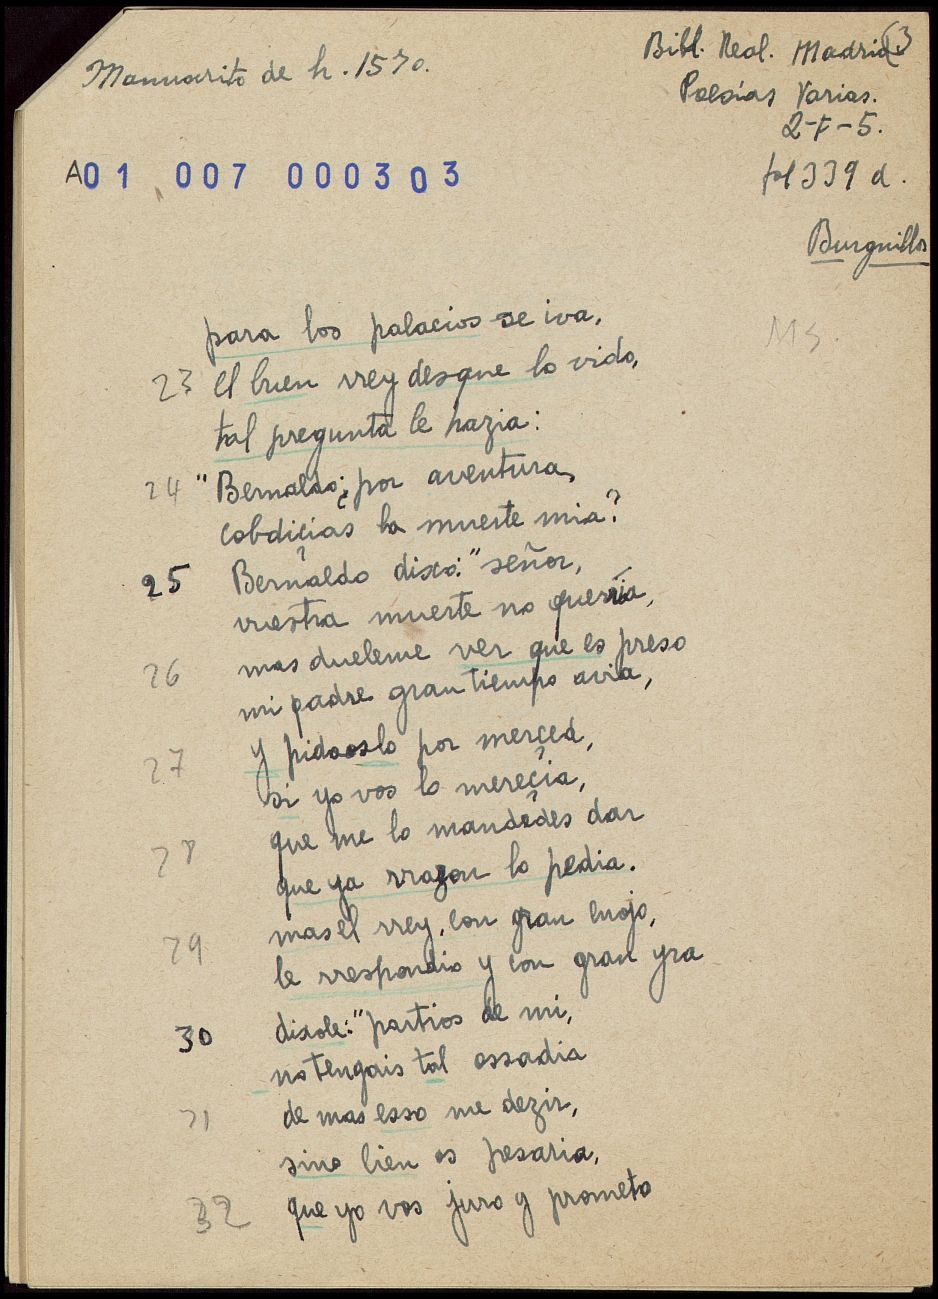 Manuscrito de h. 1570.
Bibl. Real. Madrid. (3
Poesías Varias.
2-F-5.
A01 007 000303
fol 339 d.
Burguillos
Ms.
para los palacios se iva.
23 el buen rrey desque lo vido,
tal pregunta le hazia:
24 "Bernaldo: ¿por aventura,
cobdicias la muerte mia?
25 Bernaldo dixo: "señor,
vuestra muerte no querria,
26 mas dueleme ver que es preso
mi padre gran tiempo avia,
27 y pidooslo por merçed,
si yo vos lo mereçia,
28 que me lo mandedes dar
que ya rrazon lo pedia.
29 mas el rrey, con gran enojo,
le rrespondio y con gran yra
30 dixole: "partios de mi,
no tengais tal ossadia
31 de mas esso me dezir,
sino bien os pesaria,
32 que yo vos juro y prometo